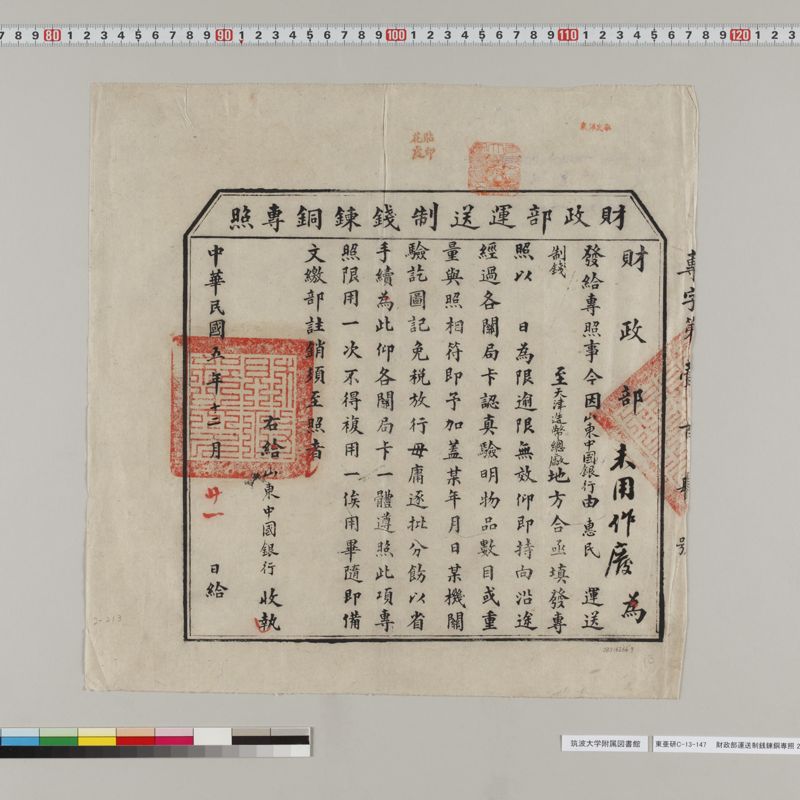 7 8 9 80 1 2 3 4 5 6 7 8 9 90 1 2 3 4 5 6 7 8 9 100 1 2 3 4 5 6 7 8 9 110 1 2 3 4 5 6 7 8 9 120 1 2 3
貼印
花處
財政部運送制錢鍊銅專照
財政部 未用作廢 為
發給專照事今因山東中國銀行由惠民 運送
制錢 至天津造幣總廠地方合亟填發專
照以 日為限逾限無效仰即持向沿途
經過各關局卡認真驗明物品數目或重
量與照相符即予加蓋某年月日某機關
驗訖圖記免税放行毋庸逐批分飭以省
手續為此仰各關局卡一體遵照此項專
照限用一次不得複用一俟用畢隨即備
文繳部註銷須至照者
右給山東中國銀行 收執
中華民國五年十二月 廿一 日給
專字第壹百 號
2-213
筑波大学附属図書館
東亜研C-13-147 財政部運送制銭錬銅専照 2